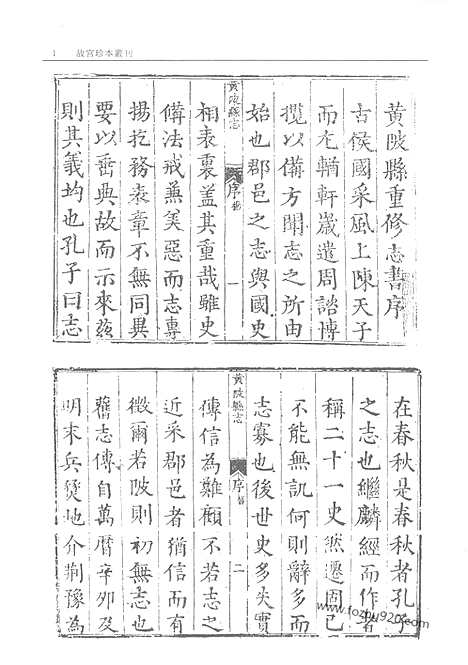 1 故宫珍本叢刊
黃陂縣重修志書序
古侯國采風上陳天子
而尢輶軒歲遣周諮博
攬以備方聞志之所由
始也郡邑之志與國史
黃陂縣志 序 一
相表裏蓋其重哉雖史
備法戒蕪美惡而志專
揚扢務表章不無同異
要以垂典故而示來茲
則其義均也孔子曰志
在春秋是春秋者孔子
之志也繼麟經而作者
稱二十一史然遷固已
不能無訛何則辭多而
志寡也後世史多失實
黃陂縣志 序 二
傳信為難顧不若志之
近采郡邑者猶信而有
徵爾若陂則初無志也
舊志傳自萬曆辛夘及
明末兵燹地介荆豫為
www.fozhu920.com